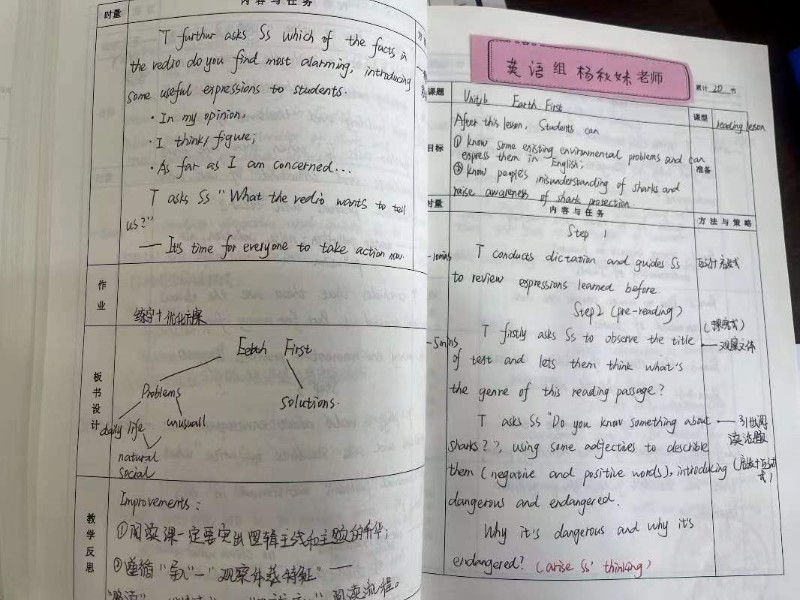 时量
内容与任务
T furthur asks Ss which of the facts in
the redio do you find most alarming, introducing
some useful expressions to students.
· In my opinion,
· I think/figure;
· As far as I am concerned...
T asks Ss "What the redio wants to tell
us?"
— It's time for everyone to take action now.
作业
练字+优化方案
板书设计
Eatch First
Problems
solutions.
daily life
unusuall
natural
social
教学反思
Improvements:
①阅读课一定要突出逻辑主线和主题的升华;
②遵循
观察体裁特征
阅读流程。
英语组 杨秋妹老师
累计 20 节
课题
Unit6 Earth First
课型
reading lesson
目标
After this lesson, Students can
① know some existing environmental problems and can
express them in English;
② know people's misunderstanding of sharks and
raise awareness of shark protection
准备
时量
内容与任务
方法与策略
Step 1
T conducts dictation and guides Ss
to review expressions learned before.
Step2 (pre-reading)
-5mins
T firstly asks Ss to observe the title
— 观察文体
of test and lets them think what's
the genre of this reading passage?
T asks Ss "Do you know something about
sharks??, using some adjectives to describe
them (negative and positive words), introducing
dangerous and endangered.
Why it's dangerous and why it's
endangered? (arise Ss' thinking)